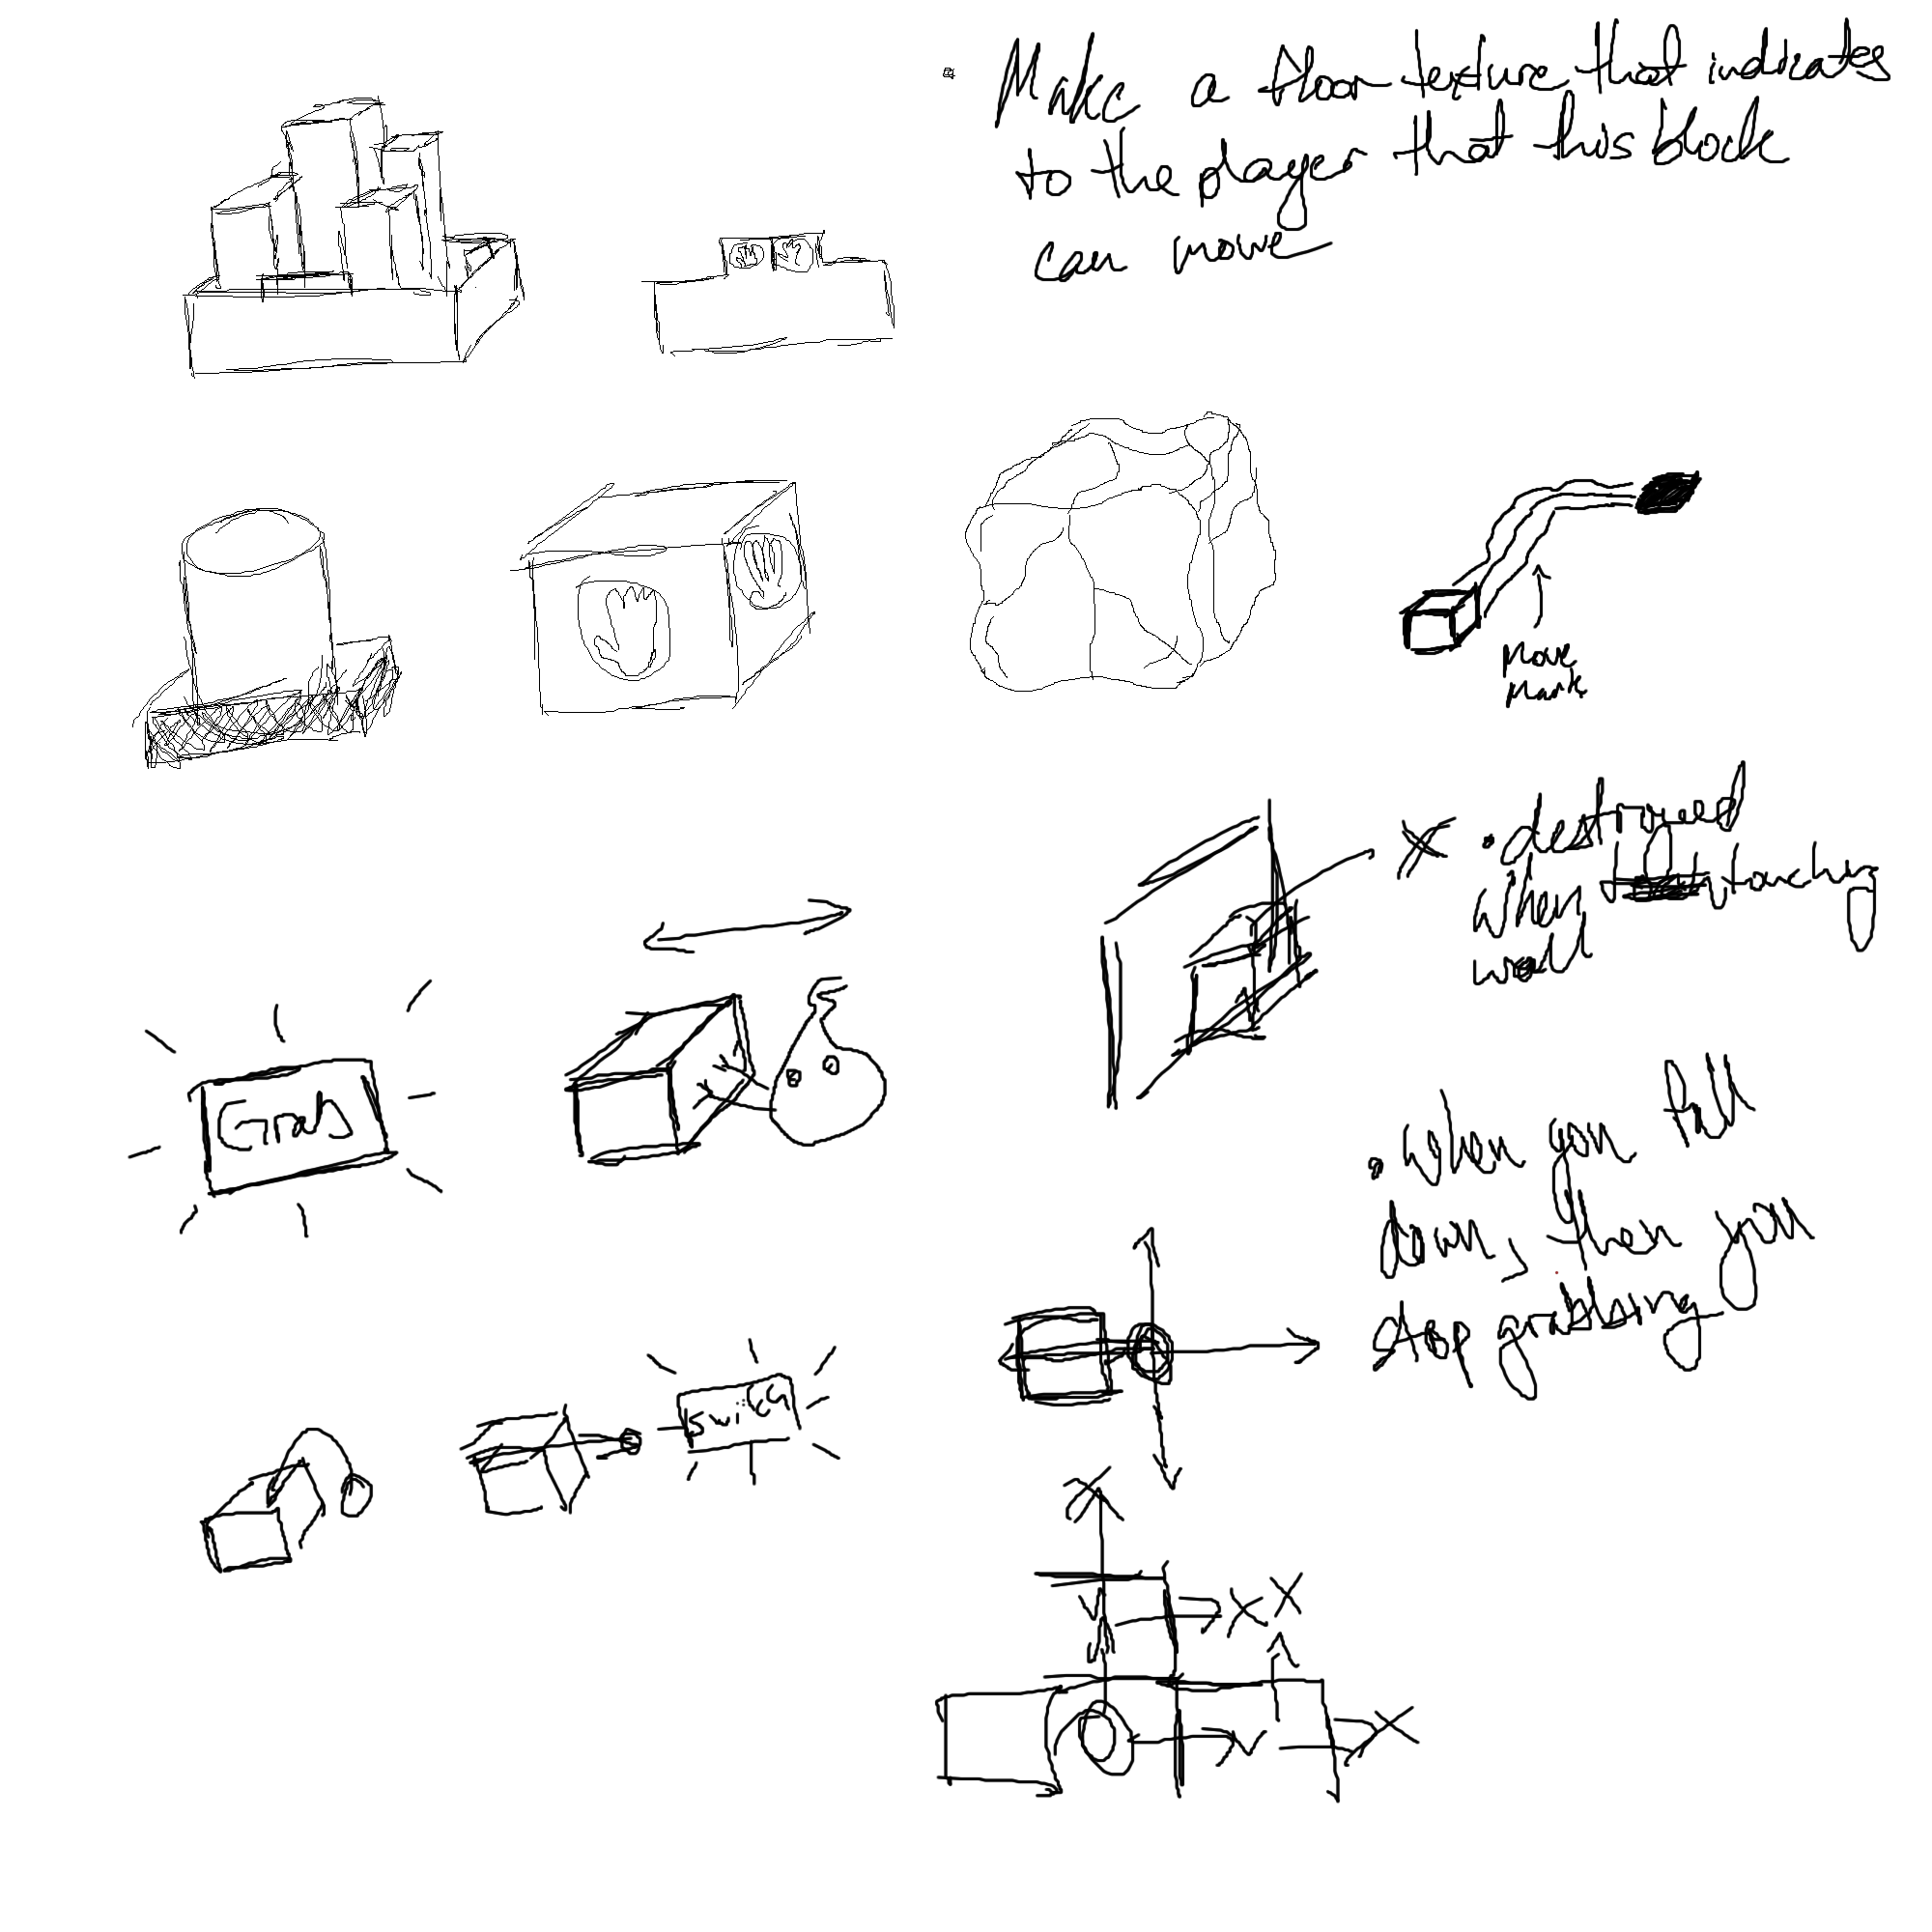 • Make a floor texture that indicates
to the player that this block
can move
Move
Mark
• destroyed
when touching
wall
Grab
• When you fall
down, then you
stop grabbing
Switch